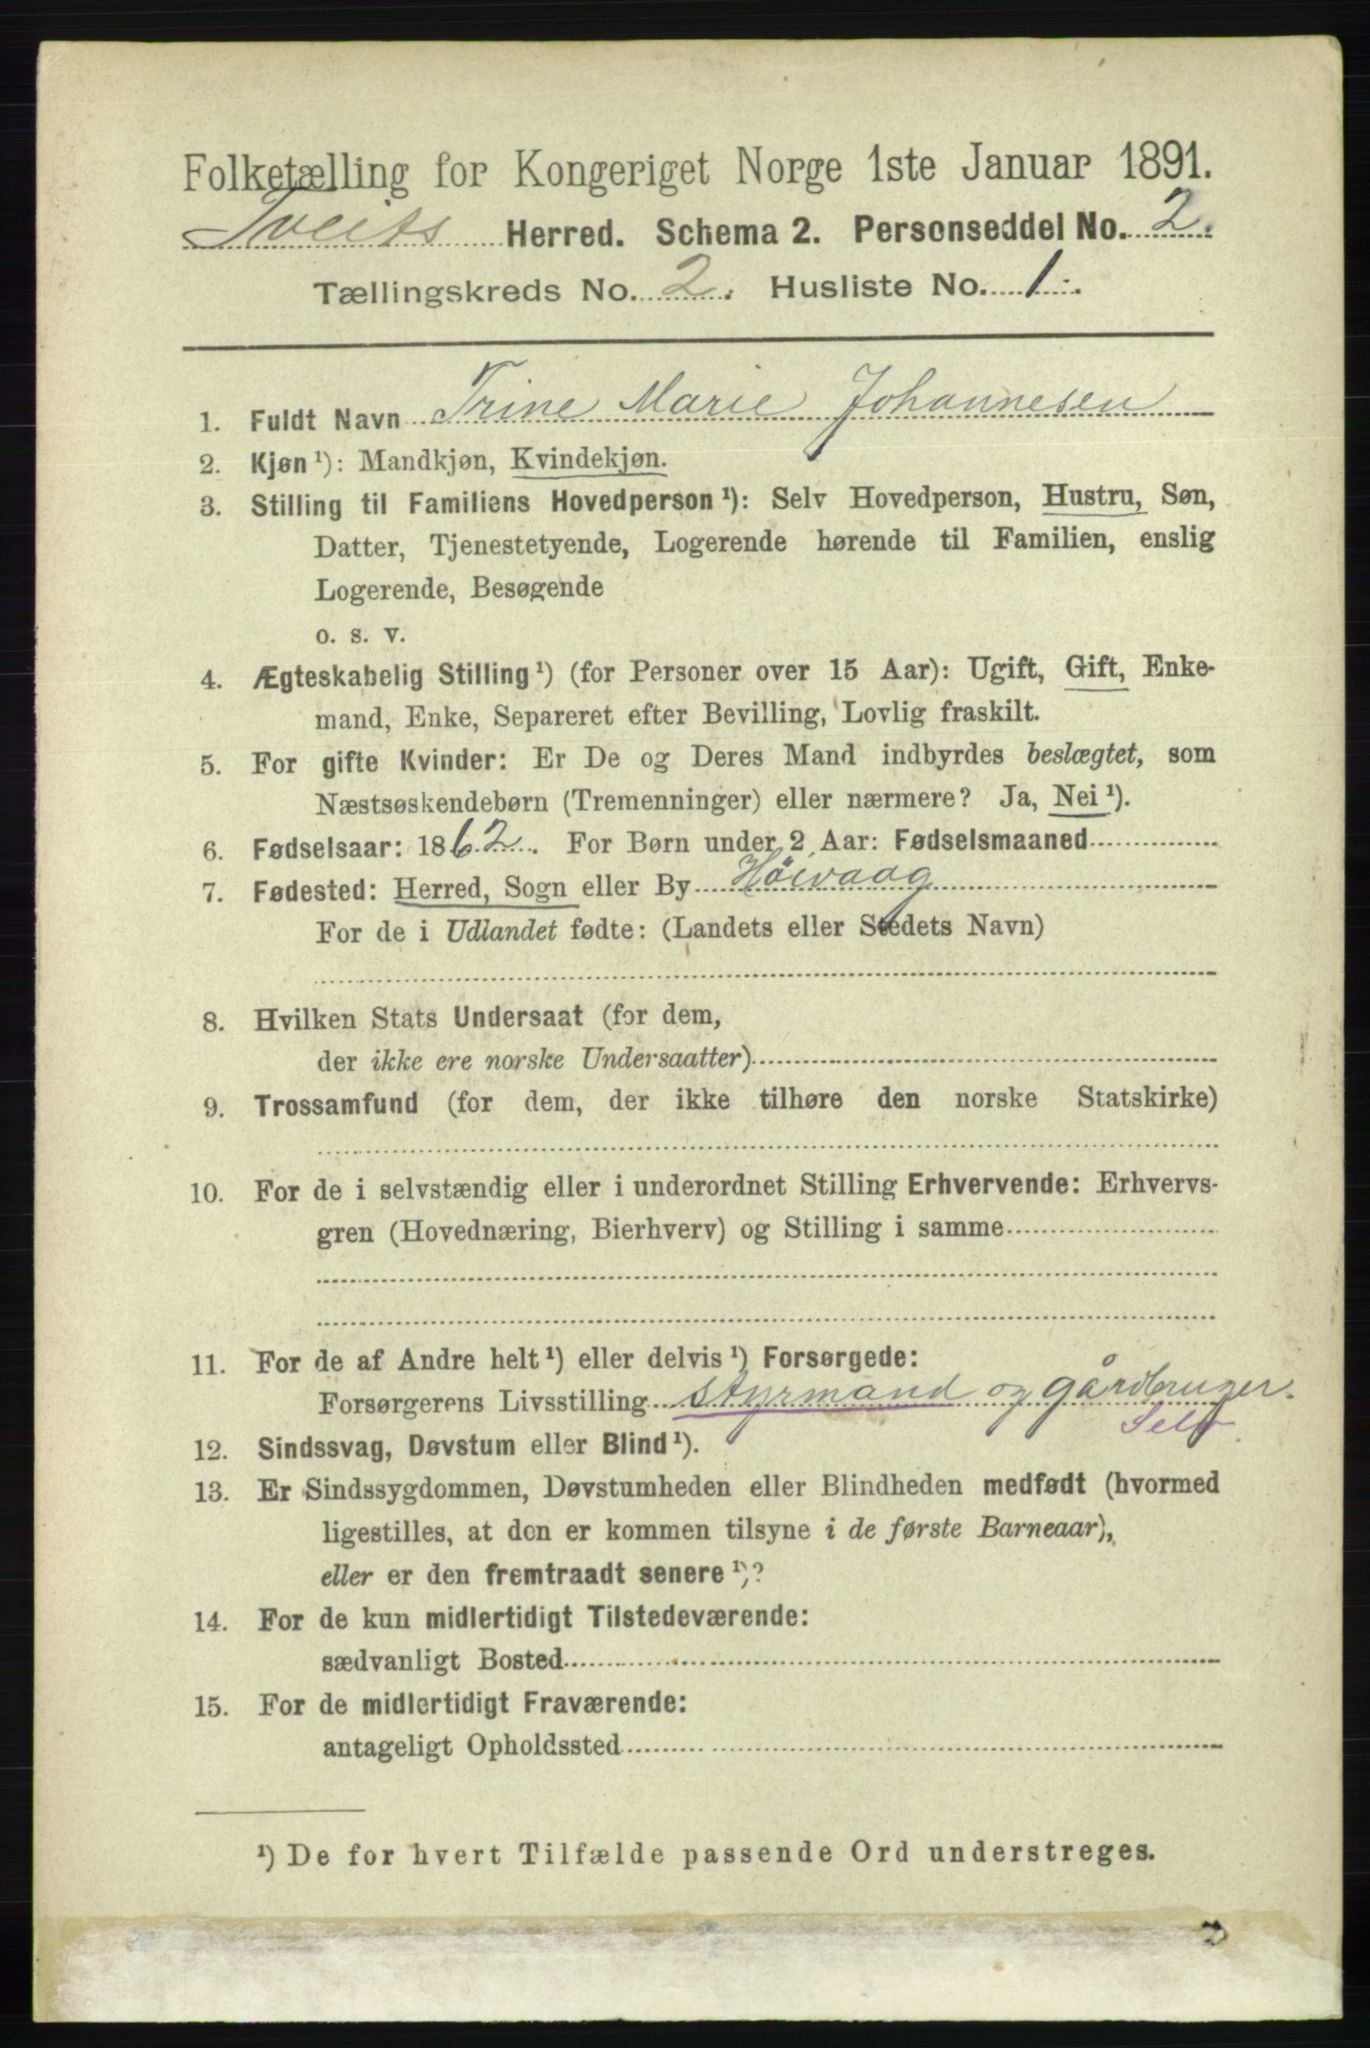 Folketælling for Kongeriget Norge 1ste Januar 1891.
Tveits Herred. Schema 2. Personseddel No. 2.
Tællingskreds No. 2. Husliste No. 1.
1. Fuldt Navn Trine Marie Johannesen
2. Kjøn¹): Mandkjøn, Kvindekjøn.
3. Stilling til Familiens Hovedperson¹): Selv Hovedperson, Hustru, Søn,
Datter, Tjenestetyende, Logerende hørende til Familien, enslig
Logerende, Besøgende
o. s. v.
4. Ægteskabelig Stilling¹) (for Personer over 15 Aar): Ugift, Gift, Enke-
mand, Enke, Separeret efter Bevilling, Lovlig fraskilt.
5. For gifte Kvinder: Er De og Deres Mand indbyrdes beslægtet, som
Næstsøskendebørn (Tremenninger) eller nærmere? Ja, Nei¹).
6. Fødselsaar: 1862. For Børn under 2 Aar: Fødselsmaaned
7. Fødested: Herred, Sogn eller By Höivaag
For de i Udlandet fødte: (Landets eller Stedets Navn)
8. Hvilken Stats Undersaat (for dem,
der ikke ere norske Undersaatter)
9. Trossamfund (for dem, der ikke tilhøre den norske Statskirke)
10. For de i selvstændig eller i underordnet Stilling Erhvervende: Erhvervs-
gren (Hovednæring, Bierhverv) og Stilling i samme
11. For de af Andre helt¹) eller delvis¹) Forsørgede:
Forsørgerens Livsstilling styrmand og gårdbruger.
Selv.
12. Sindssvag, Døvstum eller Blind¹).
13. Er Sindssygdommen, Døvstumheden eller Blindheden medfødt (hvormed
ligestilles, at den er kommen tilsyne i de første Barneaar),
eller er den fremtraadt senere¹)?
14. For de kun midlertidigt Tilstedeværende:
sædvanligt Bosted
15. For de midlertidigt Fraværende:
antageligt Opholdssted
¹) De for hvert Tilfælde passende Ord understreges.